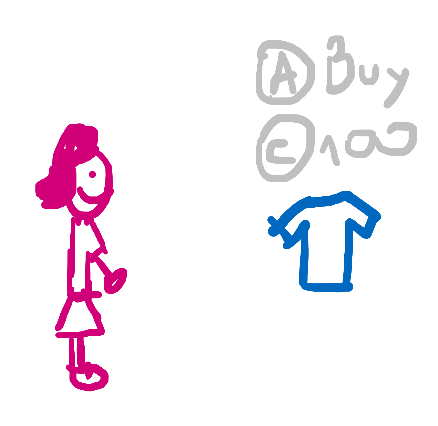 A Buy
C 100